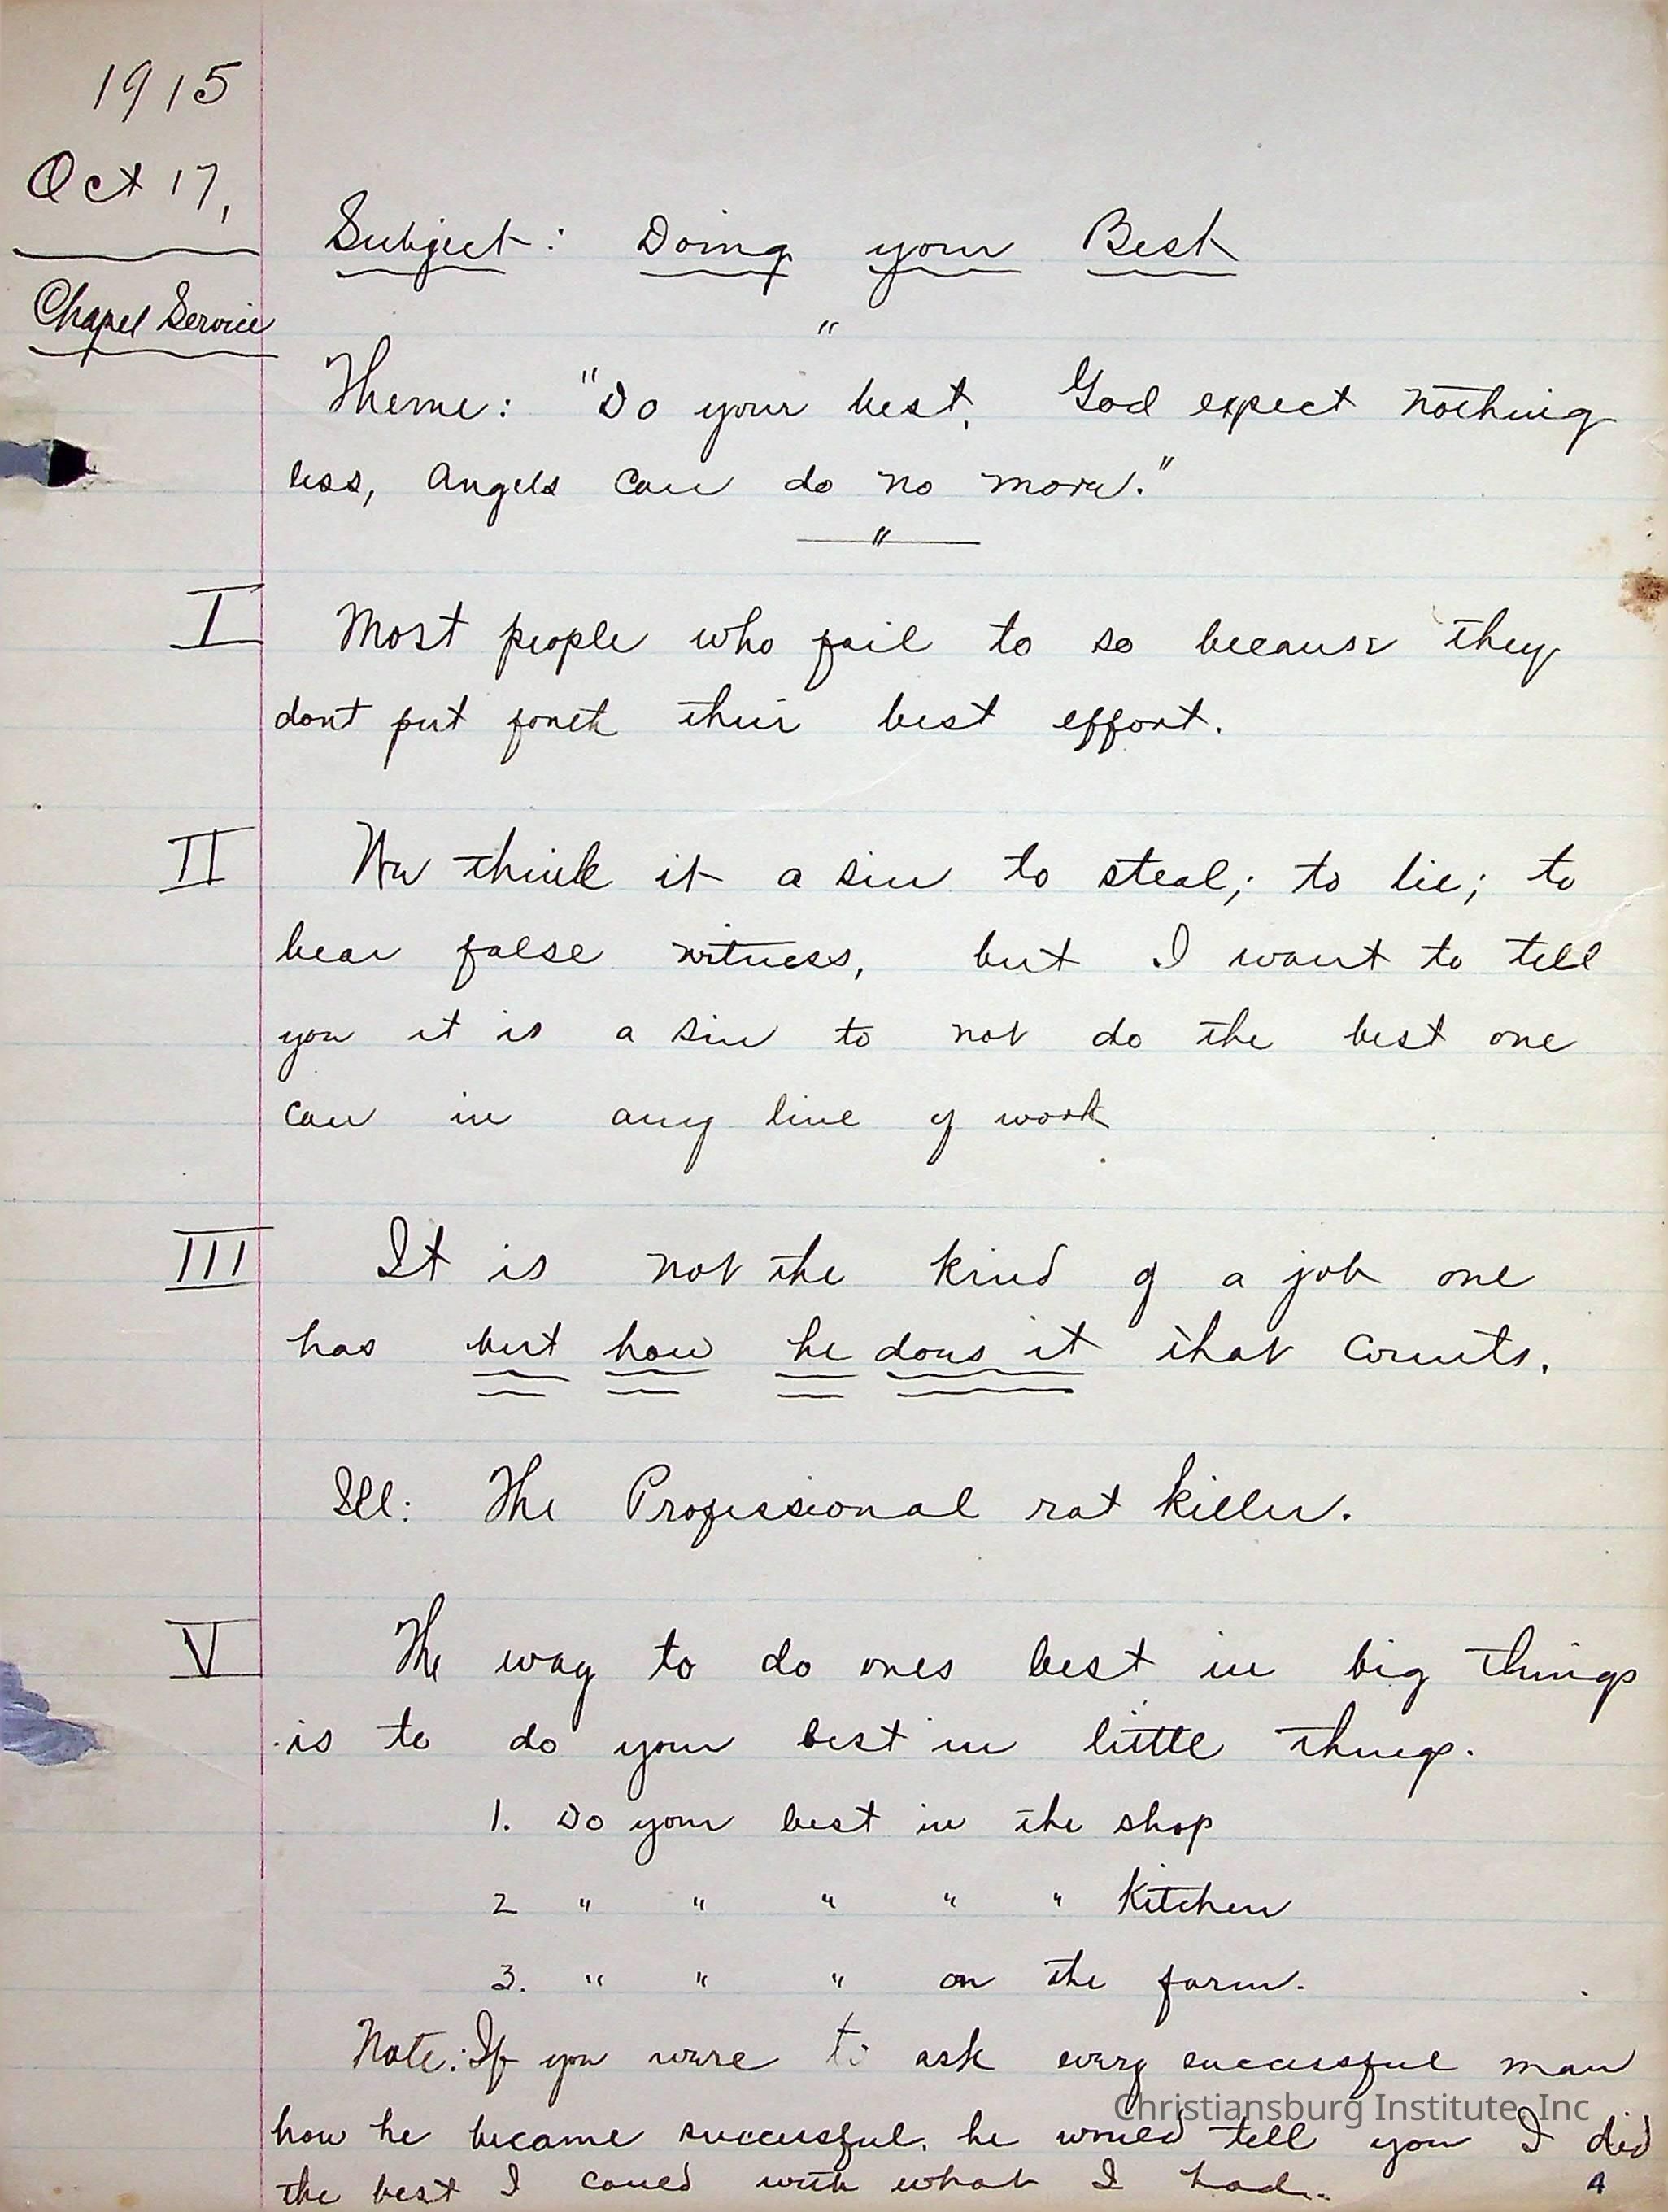 1915
Oct 17,
Chapel Service
Subject: Doing your Best
"
Theme: "Do your best, God expect nothing
less, Angels can do no more."
"
I Most people who fail to so because they
dont put forth their best effort.
II We think it a sin to steal; to lie; to
bear false witness, but I want to tell
you it is a sin to not do the best one
can in any line of work
III It is not the kind of a job one
has but how he does it that counts.
Ill: The Professional rat killer.
V The way to do ones best in big things
is to do your best in little things.
1. Do your best in the shop
2 " " " " " Kitchen
3. " " " on the farm.
Note: If you were to ask every successful man
how he became successful, he would tell you I did
the best I could with what I had.
4
Christiansburg Institute, Inc